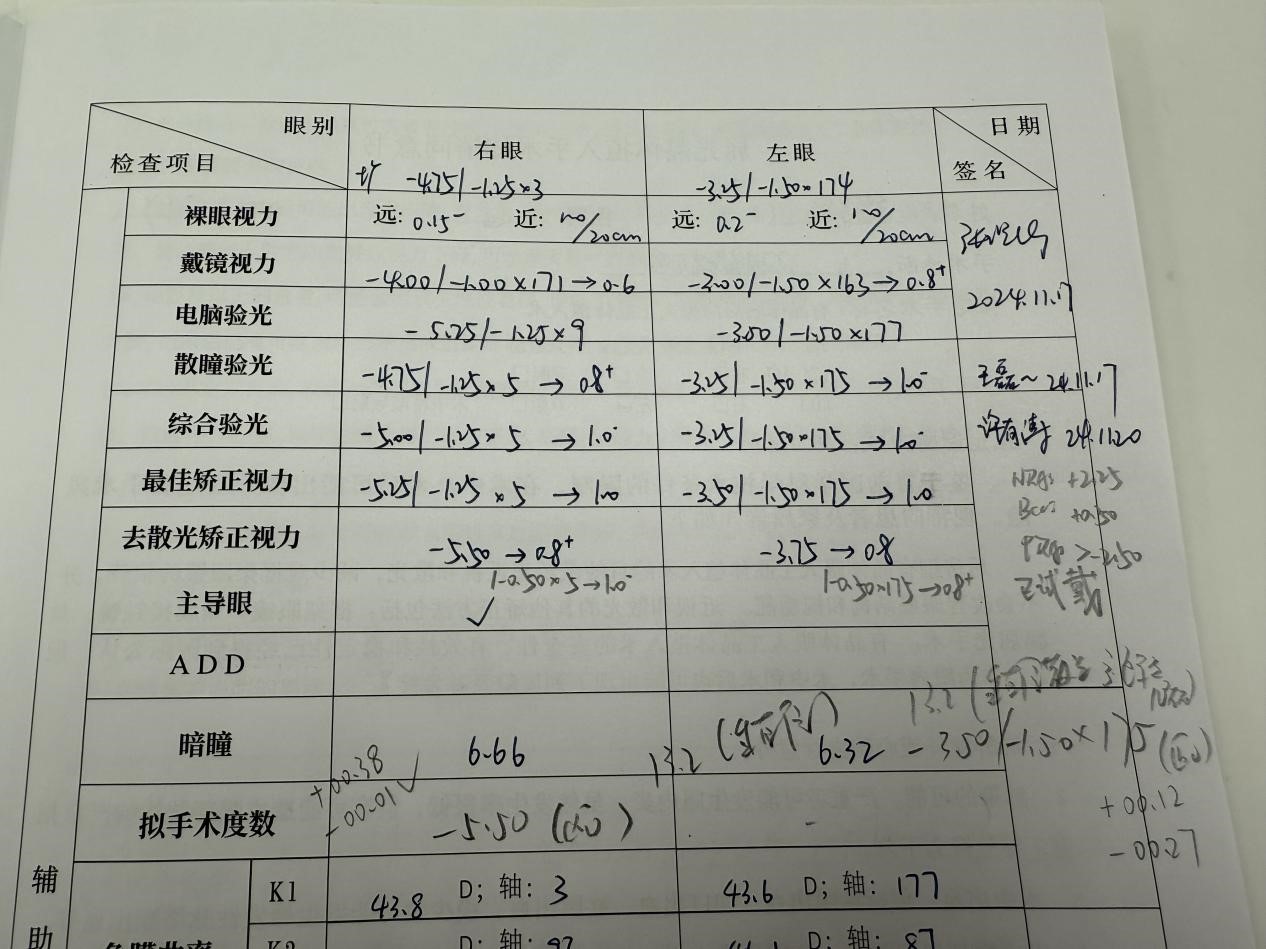 眼别 右眼 左眼 日期
检查项目 -4.75/-1.25×3 -3.25/-1.50×174 签名
裸眼视力 远: 0.15⁻ 近: /20cm 远: 0.2⁻ 近: /20cm
戴镜视力 -4.00/-1.00×171→0.6 -3.00/-1.50×163→0.8⁺ 2024.11.17
电脑验光 -5.25/-1.25×9 -3.50/-1.50×177
散瞳验光 -4.75/-1.25×5→0.8⁺ -3.25/-1.50×175→1.0⁻ 王磊~24.11.17
综合验光 -5.00/-1.25×5→1.0⁻ -3.25/-1.50×175→1.0⁻ 24.11.20
最佳矫正视力 -5.25/-1.25×5→1.0 -3.50/-1.50×175→1.0 NRA: +2.25
BCC: +0.50
去散光矫正视力 -5.50→0.8⁺ -3.75→0.8 PRA: >-2.50
/-0.50×5→1.0⁻ /-0.50×175→0.8⁺ 已试戴
主导眼 ✓
ADD
13.2
暗瞳 6.66 13.2 6.32 -3.50/-1.50×175
+00.38 +00.12
-00.01✓ -00.27
拟手术度数 -5.50 -
辅助
K1 43.8 D; 轴: 3 43.6 D; 轴: 177
K2 D; 轴: D; 轴: 87